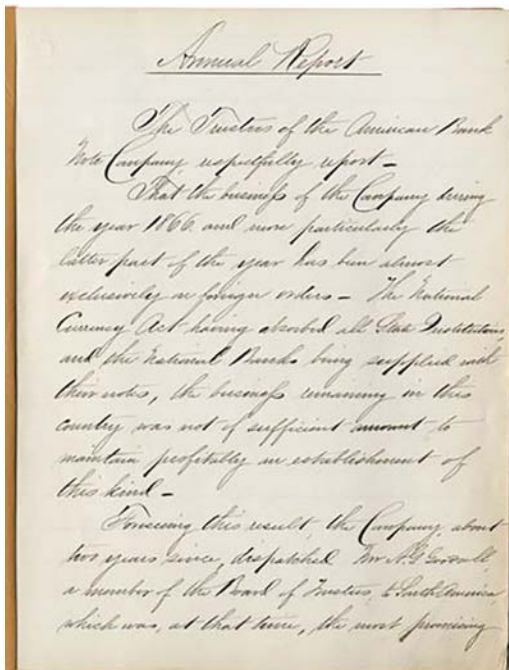 Annual Report
The Trustees of the American Bank
Note Company respectfully report –
That the business of the Company during
the year 1866. and more particularly the
latter part of the year has been almost
exclusively on foreign orders – The National
Currency Act having absorbed all State Institutions,
and the National Banks being supplied with
their notes, the business remaining in this
country was not of sufficient amount to
maintain profitably an establishment of
this kind –
Foreseeing this result, the Company, about
two years since, dispatched Mr A. G. Goodall,
a member of the Board of Trustees, to South America,
which was, at that time, the most promising